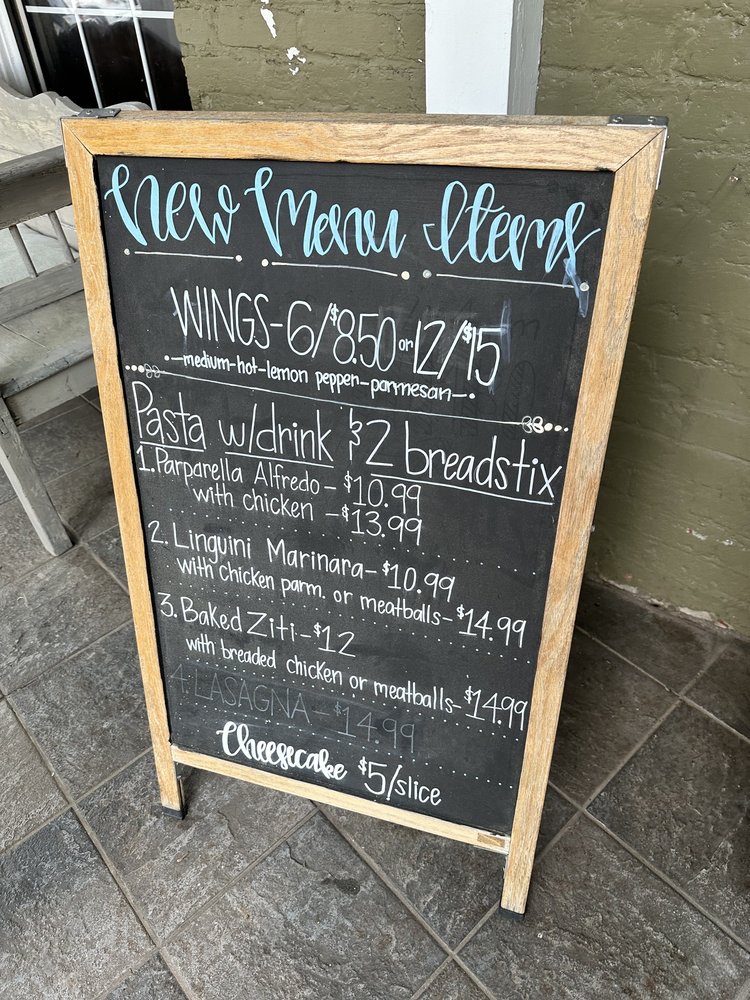 New Menu Items
WINGS-6/$8.50 or 12/$15
medium-hot-lemon pepper-parmesan
Pasta w/drink & 2 breadstix
1. Parparella Alfredo - $10.99
with chicken - $13.99
2. Linguini Marinara - $10.99
with chicken parm. or meatballs - $14.99
3. Baked Ziti - $12
with breaded chicken or meatballs - $14.99
4. LASAGNA - $14.99
Cheesecake $5/slice